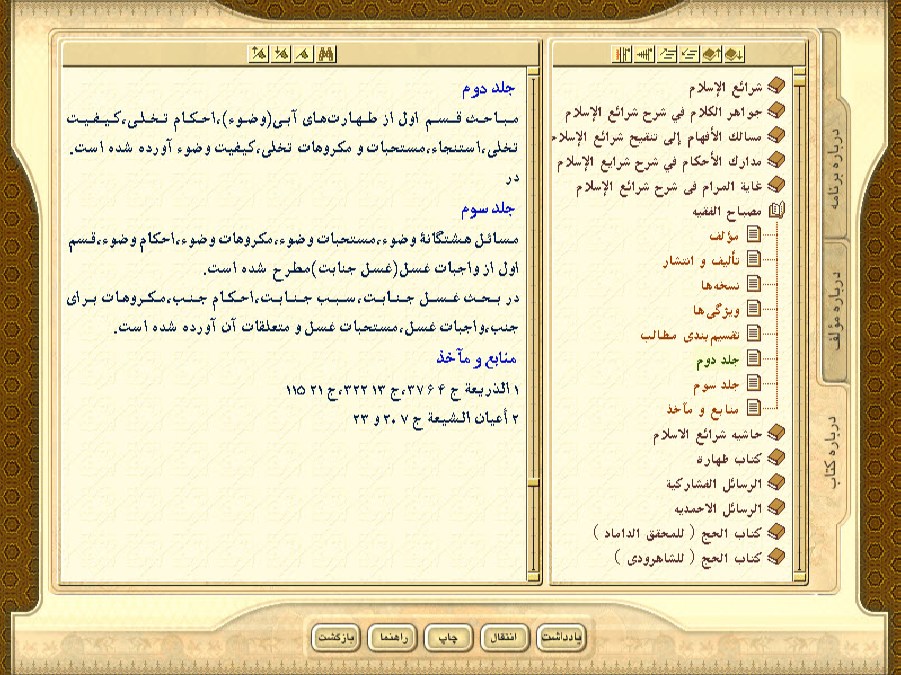 شرائع الإسلام
جواهر الكلام في شرح شرائع الإسلام
مسالك الأفهام إلى تنقيح شرائع الإسلام
مدارك الأحكام في شرح شرايع الإسلام
غاية المرام في شرح شرائع الإسلام
مصباح الفقيه
مؤلف
تأليف و انتشار
نسخه‌ها
ویژگی‌ها
تقسیم‌بندی مطالب
جلد دوم
جلد سوم
منابع و مآخذ
حاشیه شرائع الاسلام
کتاب طهارة
الرسائل الفشاركية
الرسائل الاحمديه
کتاب الحج ( للمحقق الداماد )
کتاب الحج ( للشاهرودی )
جلد دوم
مباحث قسم اول از طهارت‌های آبی(وضوء)،احکام تخلی،کیفیت
تخلی،استنجاء،مستحبات و مکروهات تخلی،کیفیت وضوء آورده شده است.
در
جلد سوم
مسائل هشتگانهٔ وضوء،مستحبات وضوء،مکروهات وضوء،احکام وضوء،قسم
اول از واجبات غسل(غسل جنابت)مطرح شده است.
در بحث غسل جنابت،سبب جنابت،احکام جنب،مکروهات برای
جنب،واجبات غسل،مستحبات غسل و متعلقات آن آورده شده است.
منابع و مآخذ
۱ الذریعة ج ۴ ۳۷۶،ج ۱۳ ۳۲۲،ج ۲۱ ۱۱۵
۲ أعیان الشیعة ج ۷ ۲۰ و ۲۳
درباره برنامه
درباره مؤلف
درباره کتاب
یادداشت
انتقال
چاپ
راهنما
بازگشت